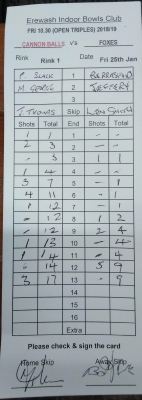 Erewash Indoor Bowls Club
FRI 10.30 (OPEN TRIPLES) 2018/19
CANNON BALLS v's FOXES
Rink Rink 1 Date Fri 25th Jan
P SLACK 1
M 2 JEFFERY
3
J. THOMAS Skip Len Smith
Shots Total End Shots Total
1 1 1 - -
2 3 2 - -
- 3 3 1 1
1 4 4 - -
3 7 5 - 1
4 11 6 - 1
1 12 7 - 1
- 12 8 1 2
- 12 9 2 4
1 13 10 - 4
1 14 11 - 4
- 14 12 5 9
3 17 13 - 9
14
15
16
17
18
Extra
Please check & sign the card
Home Skip Away Skip